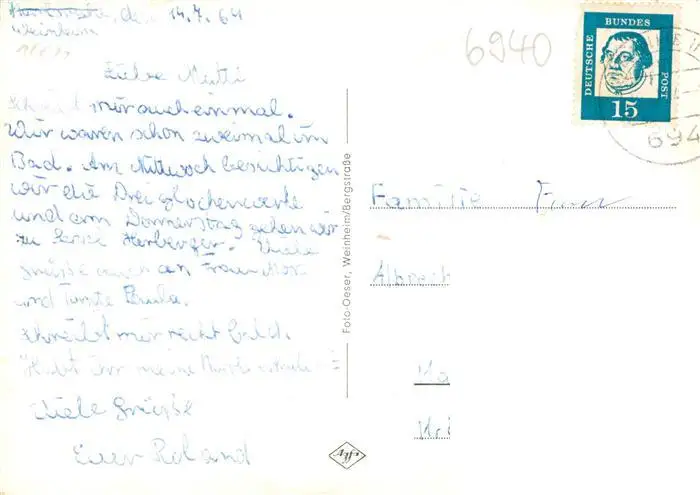 d. 14.7.64
Weinheim
6940
Liebe Mutti
mir auch einmal.
Wir waren schon zweimal im
Bad. Am Mittwoch besichtigen
wir die Drei Glockenwerke
und am Donnerstag gehen wir
zu Herberger. Viele
Grüße auch an Frau
und Tante Paula.
Schreibt mir recht bald.
Habt Ihr meine
Viele Grüße
Euer Roland
Foto-Oeser, Weinheim/Bergstraße
Agfa
DEUTSCHE BUNDES POST
15
694
Familie
Albrech
Ma
Kri